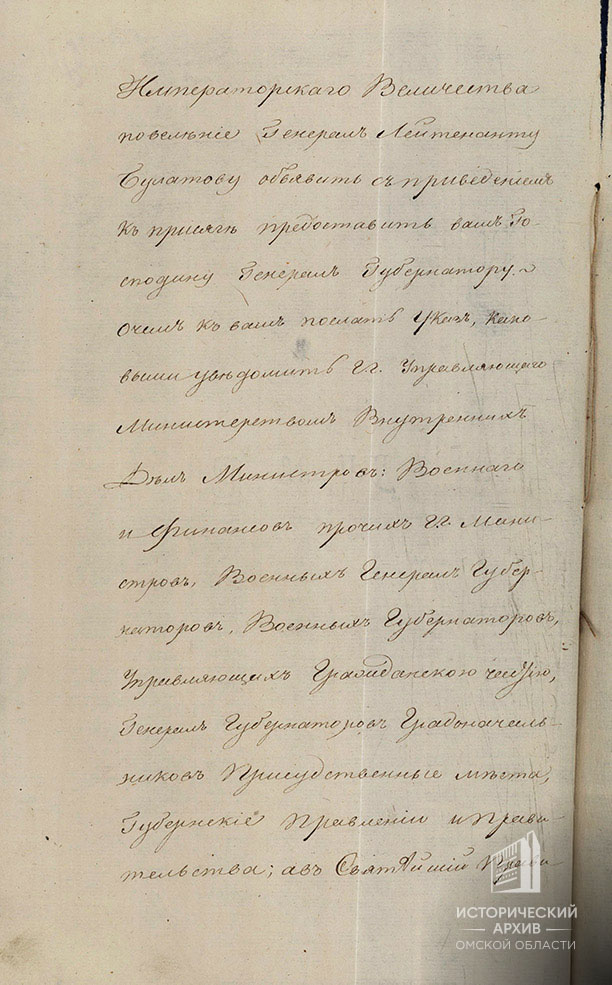 Императорскаго Величества
повелѣніе Генералъ Лейтенанту
Булатову объявить съ приведеніемъ
къ присягѣ предоставить вамъ Го-
сподину Генералъ Губернатору.
Очемъ къ вамъ послать указъ, како-
выми увѣдомить Г.г. Управляющаго
Министерствомъ Внутреннихъ
Дѣлъ Министровъ: Военнаго
и Финансовъ прочихъ Г.г. Мини-
стровъ, Военныхъ Генералъ Губер-
наторовъ, Военныхъ Губернаторовъ,
Управляющихъ Гражданскою частію,
Генералъ Губернаторовъ Градоначаль-
никовъ Присудственные мѣста,
Губернскіе Правленіи и Прави-
тельства; авъ Святѣйшій Прави-
ИСТОРИЧЕСКИЙ
АРХИВ
ОМСКОЙ ОБЛАСТИ